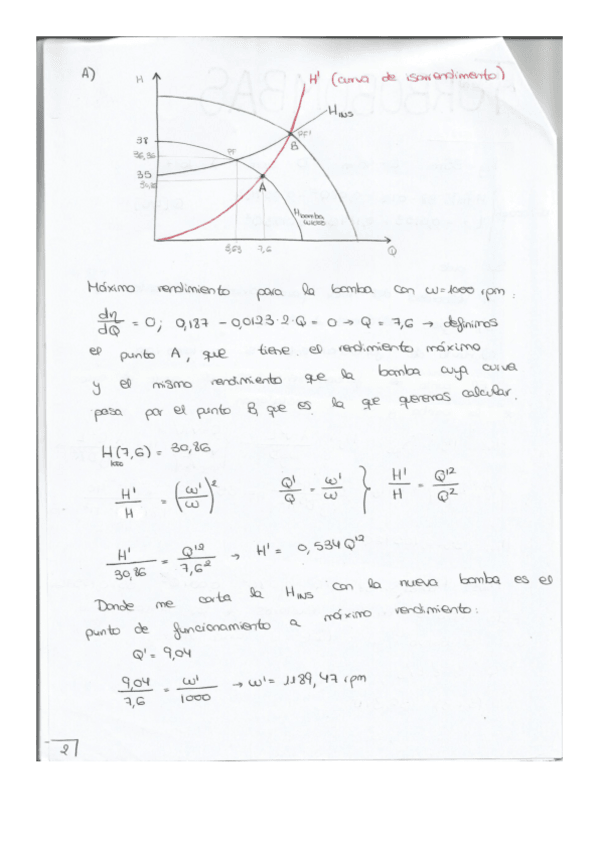 A)
H
H' (curva de isorrendimento)
H INS
38
PF
PF'
36,36
B
35
A
H bomba
ω1000
5,63 7,6
Q
Máximo rendimiento para la bomba con ω=1000 rpm:
dη/dQ = 0; 0,187 - 0,0123·2·Q = 0 → Q = 7,6 → definimos
el punto A, que tiene el rendimiento máximo
y el mismo rendimiento que la bomba cuya curva
pasa por el punto B, que es la que queremos calcular.
H(7,6) = 30,86
1000
H'/H = (ω'/ω)² Q'/Q = ω'/ω } H'/H = Q'²/Q²
H'/30,86 = Q'²/7,6² → H' = 0,534 Q'²
Donde me corta la H INS con la nueva bomba es el
punto de funcionamiento a máximo rendimiento:
Q' = 9,04
9,04/7,6 = ω'/1000 → ω' = 1189,47 rpm
2